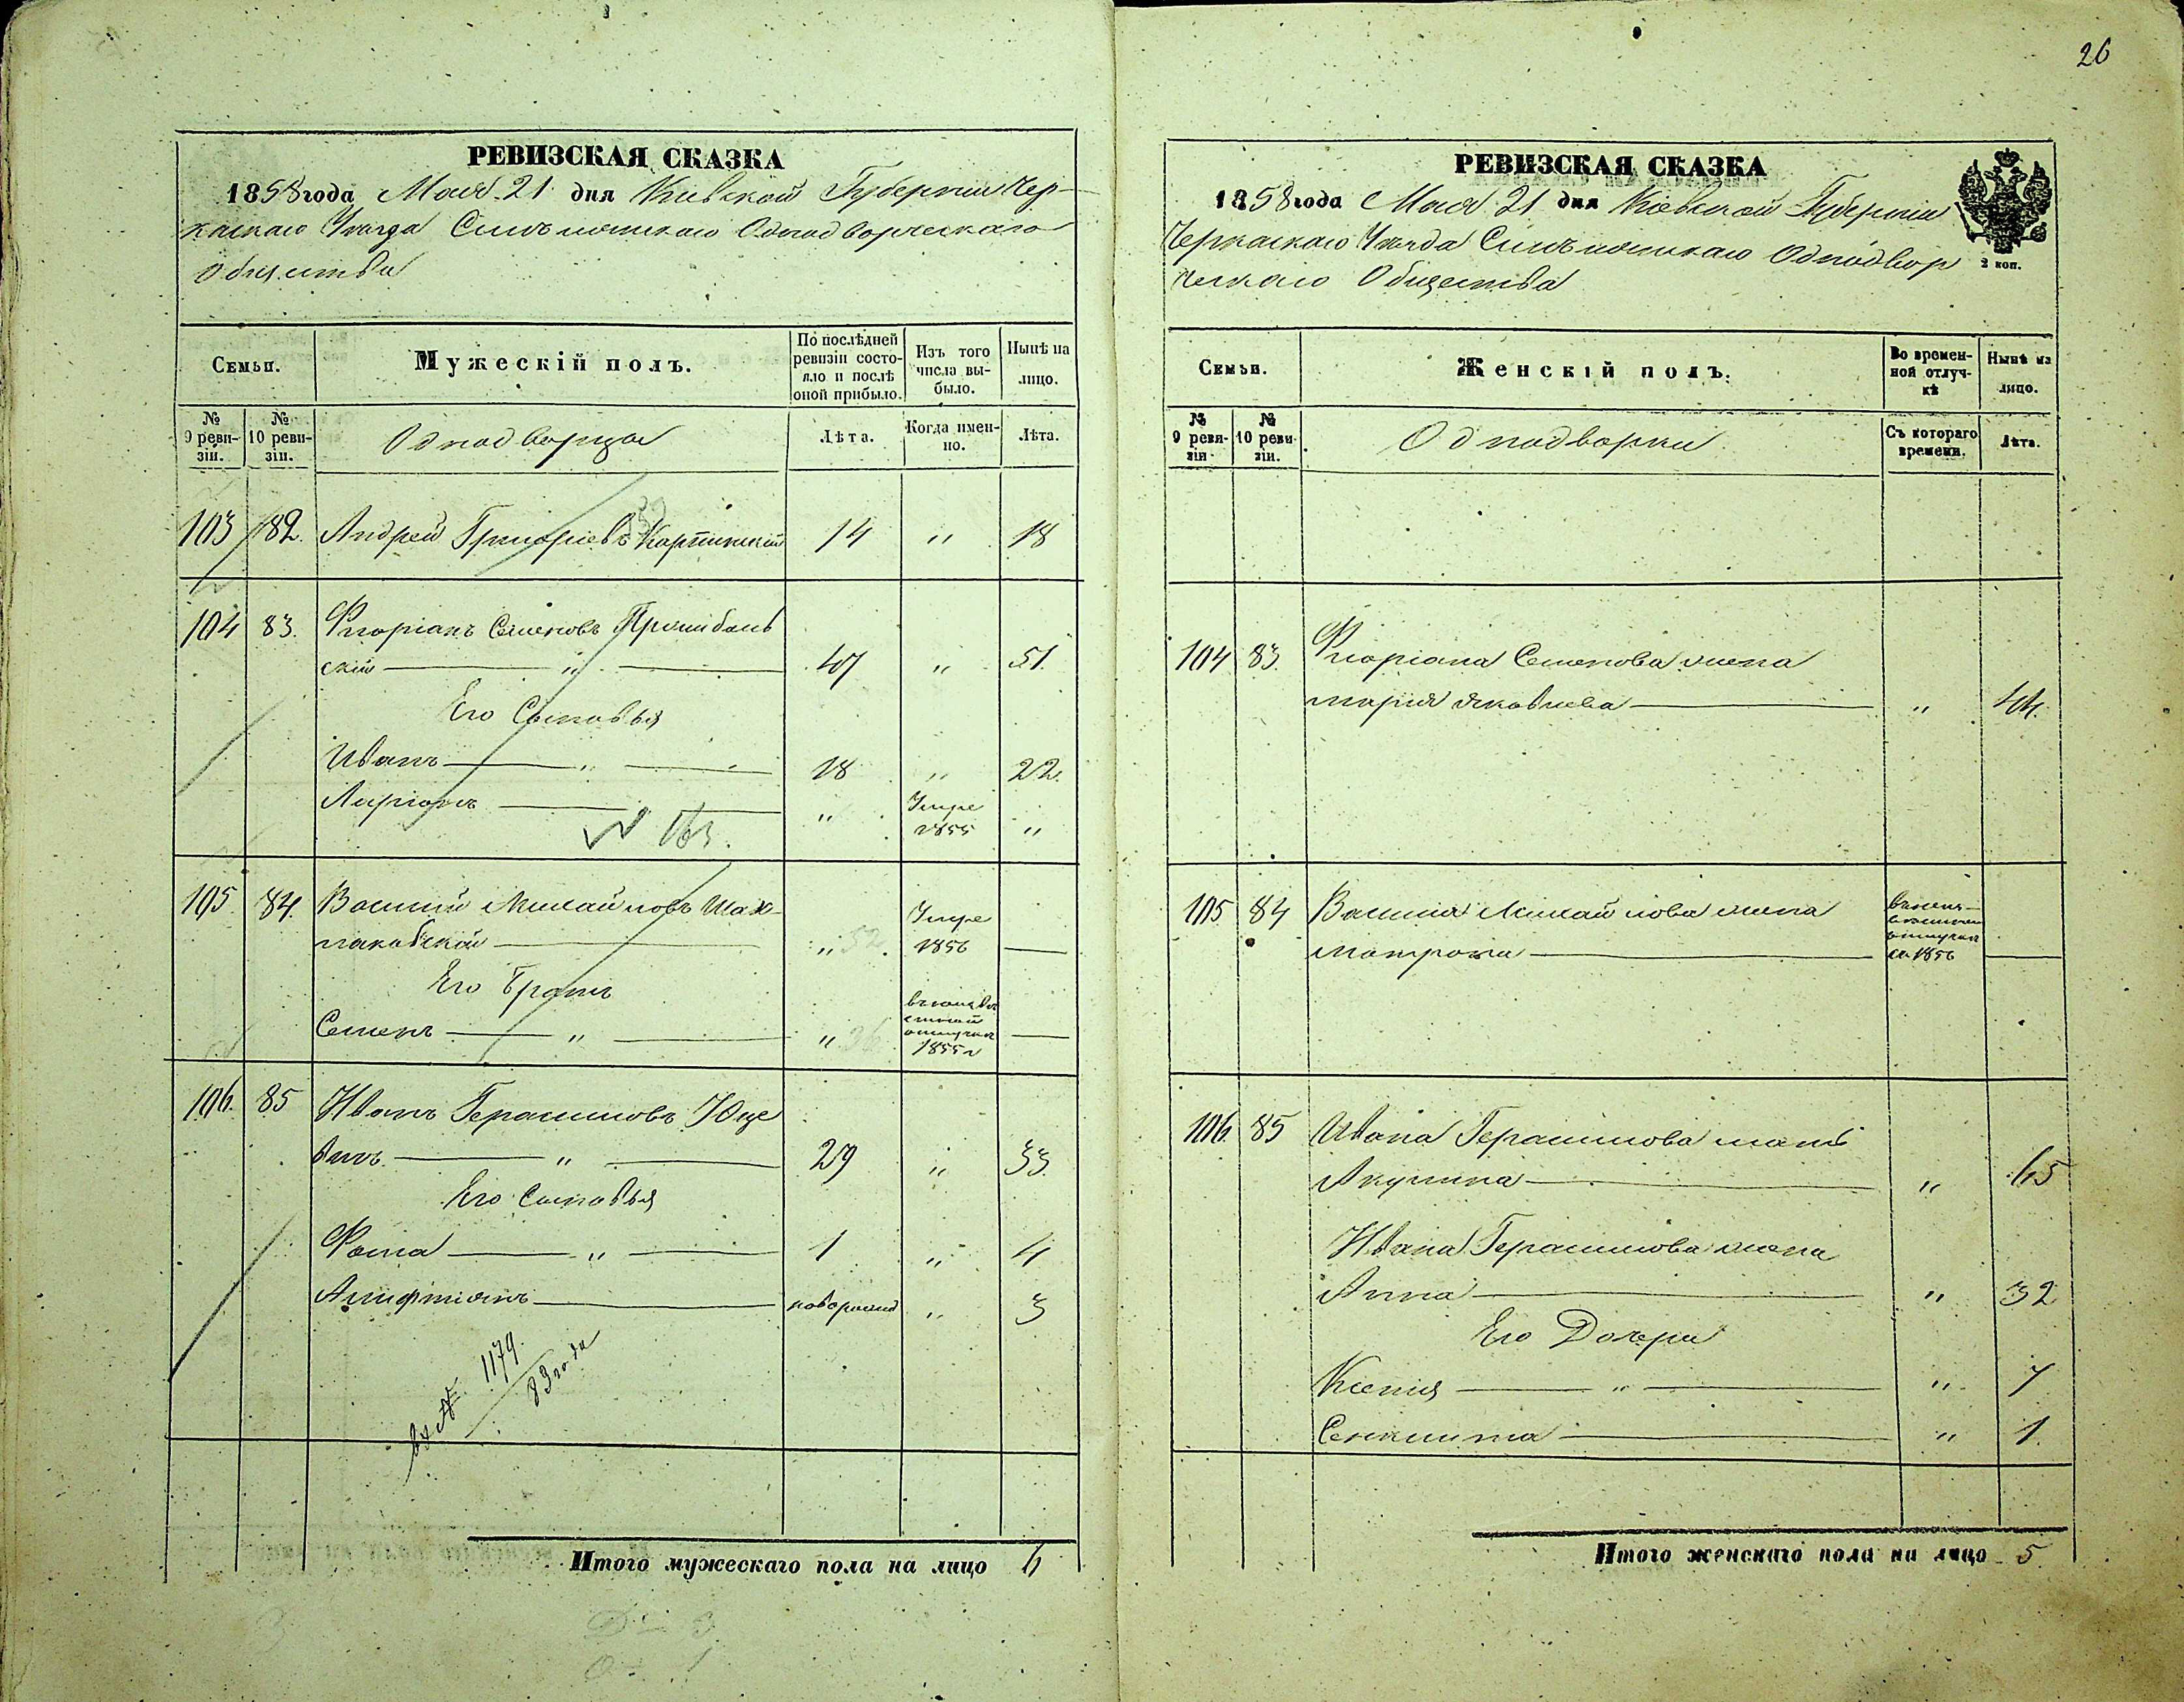 26
РЕВИЗСКАЯ СКАЗКА
1858 года Мая 21 дня Киевской Губернии Чер-
каскаго Уезда Однодворческаго
Общества
Семьи.
Мужескій полъ.
По послѣдней
ревизіи состо-
яло и послѣ
оной прибыло.
Изъ того
числа вы-
было.
Нынѣ на
лицо.
№
9 реви-
зіи.
№
10 реви-
зіи.
Однодворцы
Лѣта.
Когда имен-
но.
Лѣта.
103 82. Андрей Григорьевъ 14 " 18
104 83. Флоріанъ Семеновъ
скій " 47 " 51.
Его Сыновья
Иванъ " 18 " 22.
Ларіонъ " Умре 1855 "
105 84. Василий Михайловъ Шах-
" 52 Умре 1856
Его Братъ
Семенъ " " 36 отлучке 1855 г
106. 85 Иванъ Герасимовъ Юще
" 29 " 33.
Его Сыновья
Фома " 1 " 4
новорожд " 3
вх № 1179
83 года
Итого мужескаго пола на лицо 6
РЕВИЗСКАЯ СКАЗКА
1858 года Мая 21 дня Кіевской Губерніи
Черкаскаго Уезда Однодвор
ческаго Общества
2 коп.
Семьи.
Женскій полъ.
Во времен-
ной отлуч-
кѣ
Нынѣ на
лицо.
№
9 реви-
зіи
№
10 реви-
зіи.
Однодворки
Съ котораго
времени.
Лѣта.
104 83. Флоріана Семенова жена
Марія Яковлева " 44.
105 84 Василия Михайлова жена
Матрона отлучке 1856
106. 85 Ивана Герасимова мать
Акулина " 65
Ивана Герасимова жена
Анна " 32
Его Дочери
Ксенія " " 7
" 1.
Итого женскаго пола на лицо 5